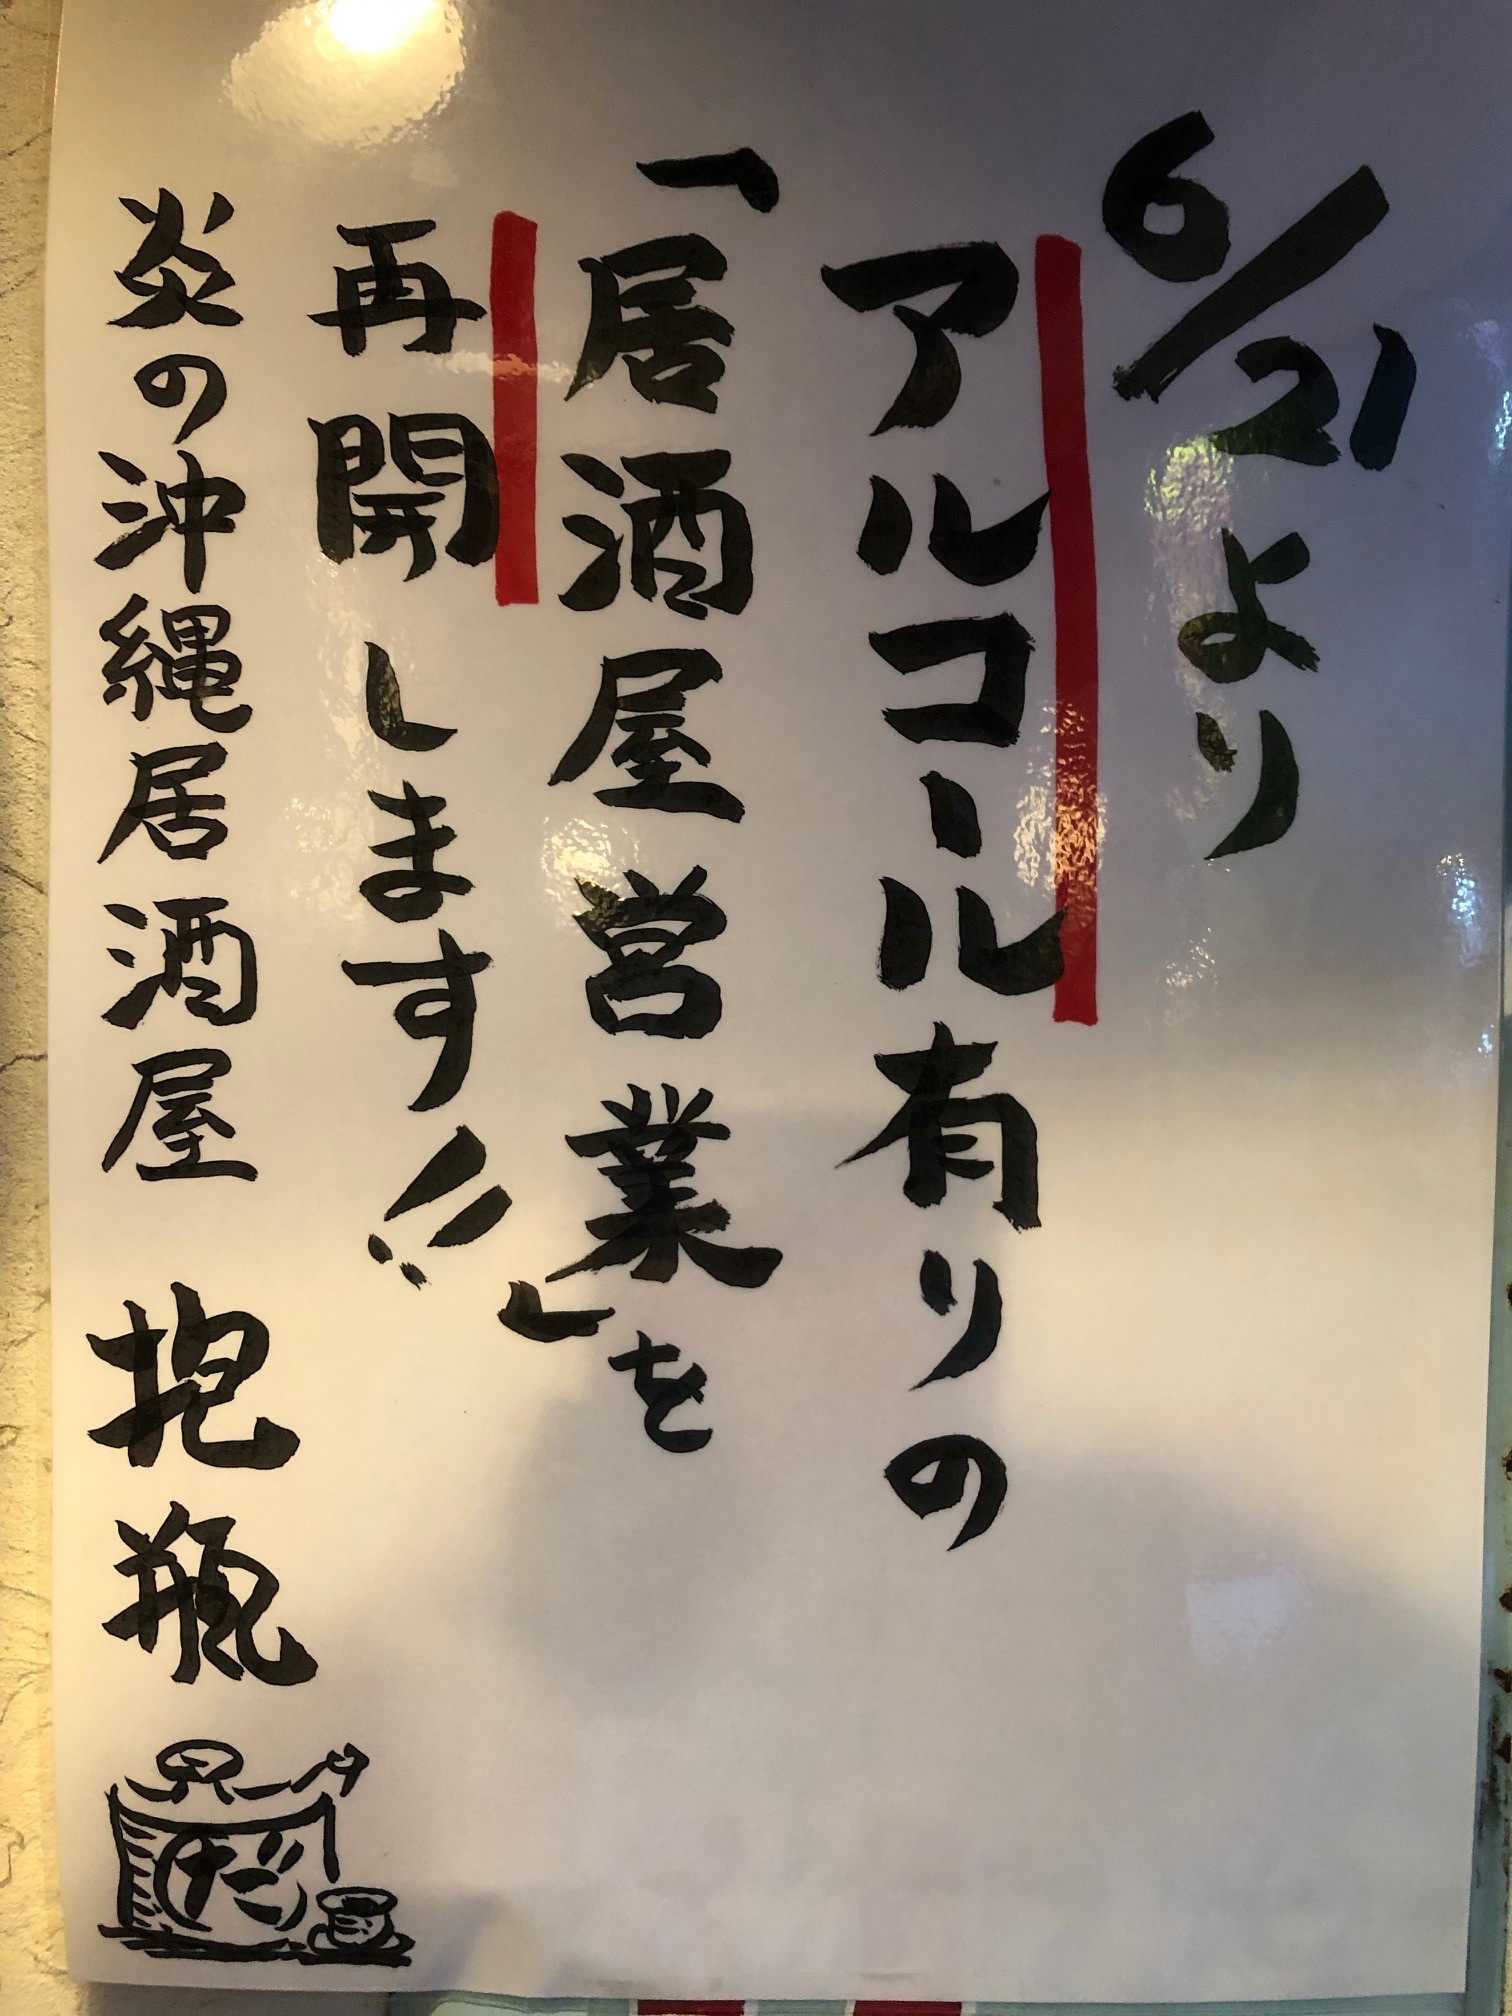 6/21より
アルコール有りの
「居酒屋営業」を
再開します!!
炎の沖縄居酒屋 抱瓶